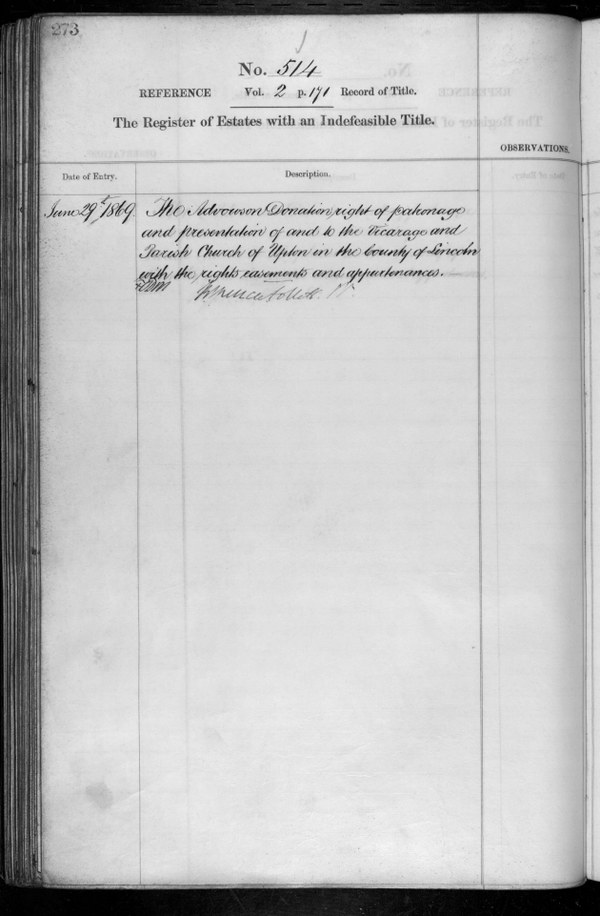 273
No. 514
REFERENCE Vol. 2 p. 171 Record of Title.
The Register of Estates with an Indefeasible Title.
OBSERVATIONS.
Date of Entry. Description.
June 29th 1869 The Advowson Donation right of patronage
and presentation of and to the Vicarage and
Parish Church of Upton in the county of Lincoln
with the rights easements and appurtenances.